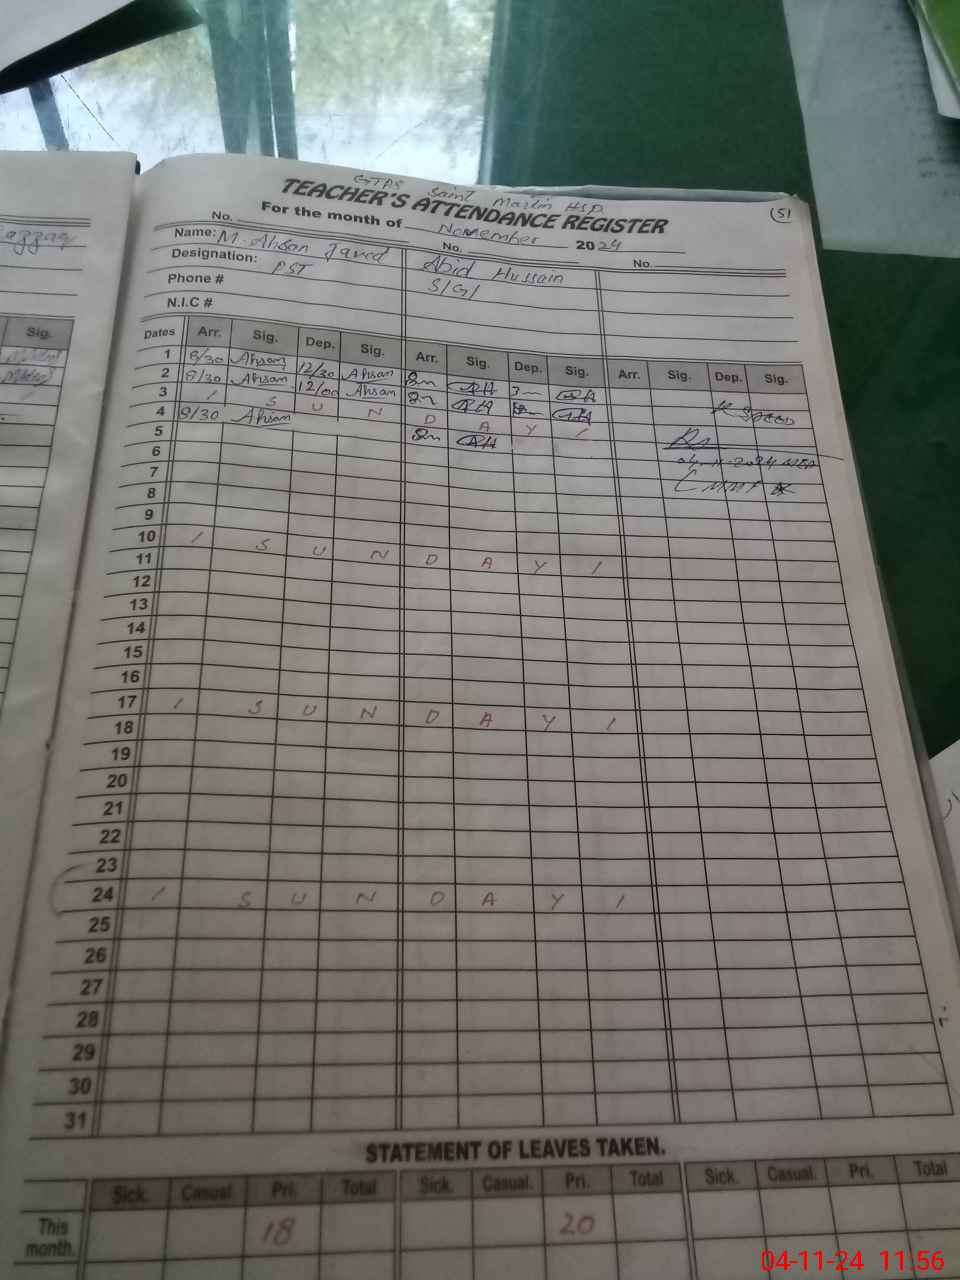 GTPS Saint Martin HSD
TEACHER'S ATTENDANCE REGISTER
51
For the month of November 2024
No. No. No.
Name: M. Ahsan Javed Abid Hussain
Designation: PST S/G/
Phone #
N.I.C #
Sig.
Dates Arr. Sig. Dep. Sig. Arr. Sig. Dep. Sig. Arr. Sig. Dep. Sig.
1 8/30 Ahsan 12/30 Ahsan
2 8/30 Ahsan 12/00 Ahsan
3 / S U N D A Y /
4 8/30 Ahsan
5
6
7
8
9
10 / S U N D A Y /
11
12
13
14
15
16
17 / S U N D A Y /
18
19
20
21
22
23
24 / S U N D A Y /
25
26
27
28
29
30
31
STATEMENT OF LEAVES TAKEN.
Sick. Casual. Pri. Total Sick. Casual. Pri. Total Sick. Casual. Pri. Total
This month. 18 20
04-11-24 11:56